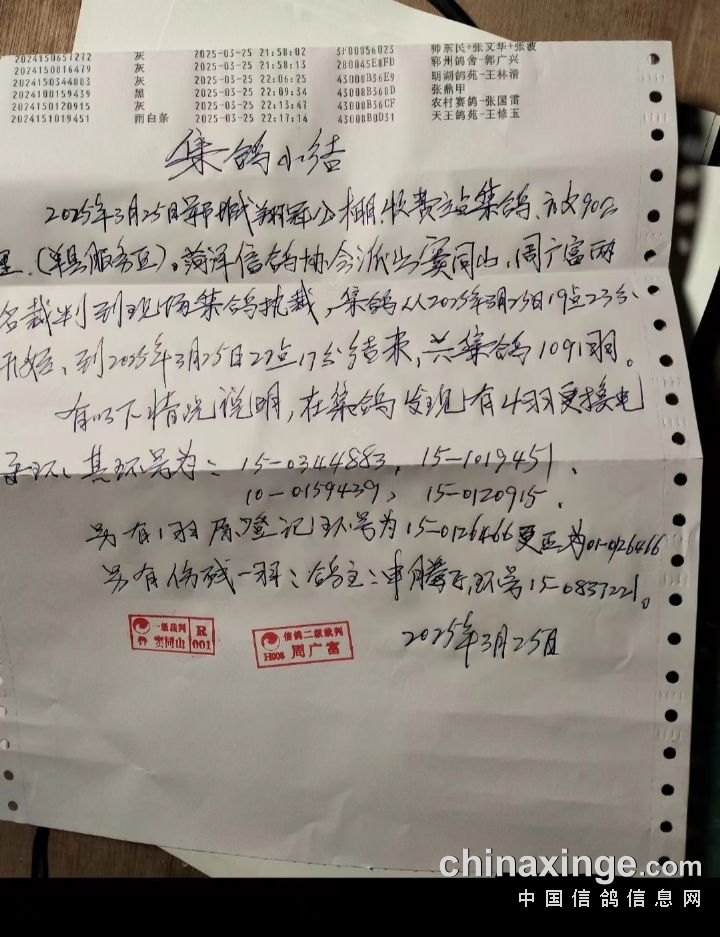 2024150657272 灰 2025-03-25 21:58:02 3F00856023 师东民+张文华+张波
2024150816479 灰 2025-03-25 21:58:13 280045E8FD 郓州鸽舍-郭广兴
2024150344883 灰 2025-03-25 22:06:25 43008B36E9 明湖鸽苑-王林清
2024100159439 黑 2025-03-25 22:09:34 43008B368D 张鼎甲
2024150120915 灰 2025-03-25 22:13:47 43008B36CF 农村赛鸽-张国雷
2024151019451 雨白条 2025-03-25 22:17:14 43008B0D31 天王鸽苑-王修玉
集鸽小结
2025年3月25日郓城翔冠公棚收费站点集鸽、放90公
里.(单县服务区)。菏泽信鸽协会派出窦同山,周广富两
名裁判到现场集鸽执裁,集鸽从2025年3月25日19点23分
开始,到2025年3月25日22点17分结束,共集鸽1091羽。
有以下情况说明,在集鸽发现有4羽更换电
子环、其环号为:15-0344883, 15-1019451、
10-0159439, 15-0120915.
另有1羽原登记环号为15-0126466更正为01-0126466
另有伤残一羽:鸽主:申腾飞,环号15-0837221。
一级裁判 R
鲁 窦同山 001
信鸽二级裁判
H008 周广富
2025年3月25日
chinaxinge.com
中国信鸽信息网